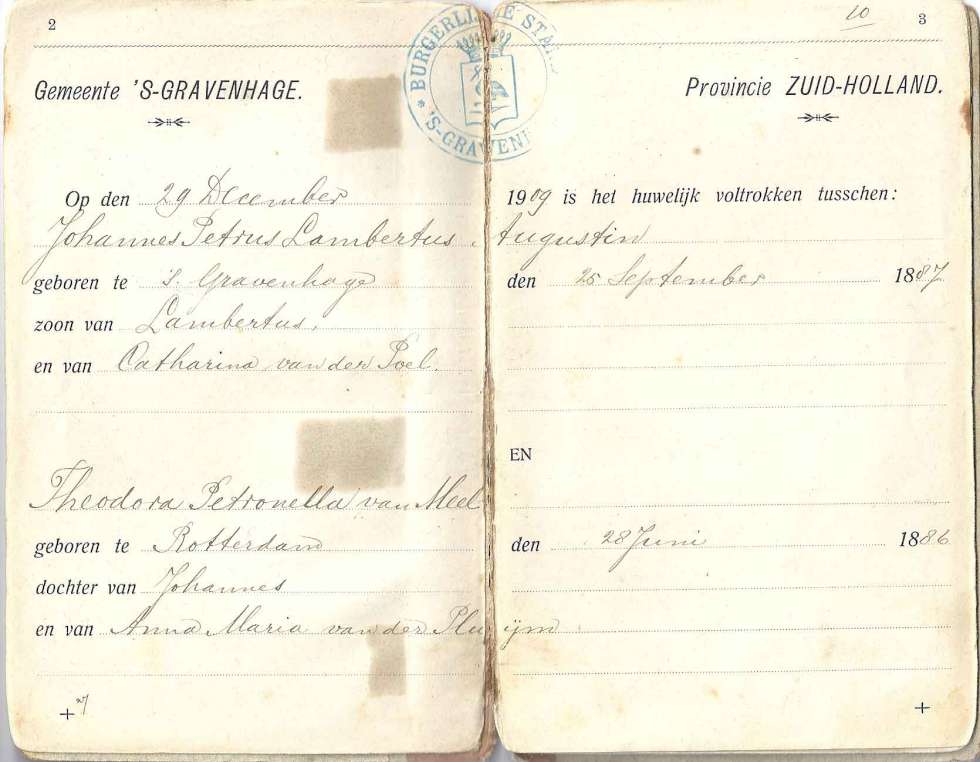 2
10
3
BURGERLIJKE STAND
'S-GRAVENH
Gemeente 'S-GRAVENHAGE.
Provincie ZUID-HOLLAND.
Op den 29 December 1909 is het huwelijk voltrokken tusschen:
Johannes Petrus Lambertus Augustin
geboren te 's Gravenhage den 25 September 1887
zoon van Lambertus,
en van Catharina van der Poel.
EN
Theodora Petronella van Meel
geboren te Rotterdam den 28 Juni 1886
dochter van Johannes
en van Anna Maria van der Pluijm
+
+